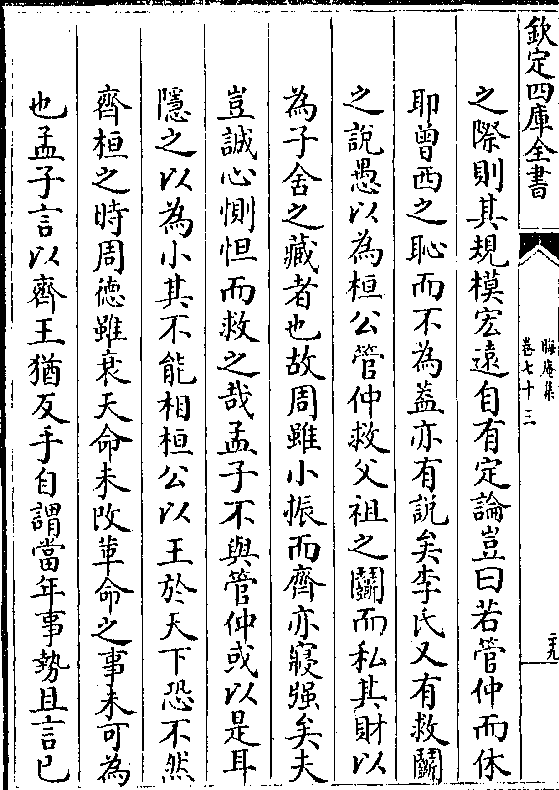 欽定四庫全書
晦庵集
卷七十三
二十九
之際則其規模宏遠自有定論豈曰若管仲而休
耶曾西之恥而不為蓋亦有說矣李氏又有救鬭
之說愚以為桓公管仲救父祖之鬭而私其財以
為子舍之藏者也故周雖小振而齊亦寖强矣夫
豈誠心惻怛而救之哉孟子不與管仲或以是耳
隱之以為小其不能相桓公以王於天下恐不然
齊桓之時周德雖衰天命未改革命之事未可為
也孟子言以齊王猶反手自謂當年事勢且言已